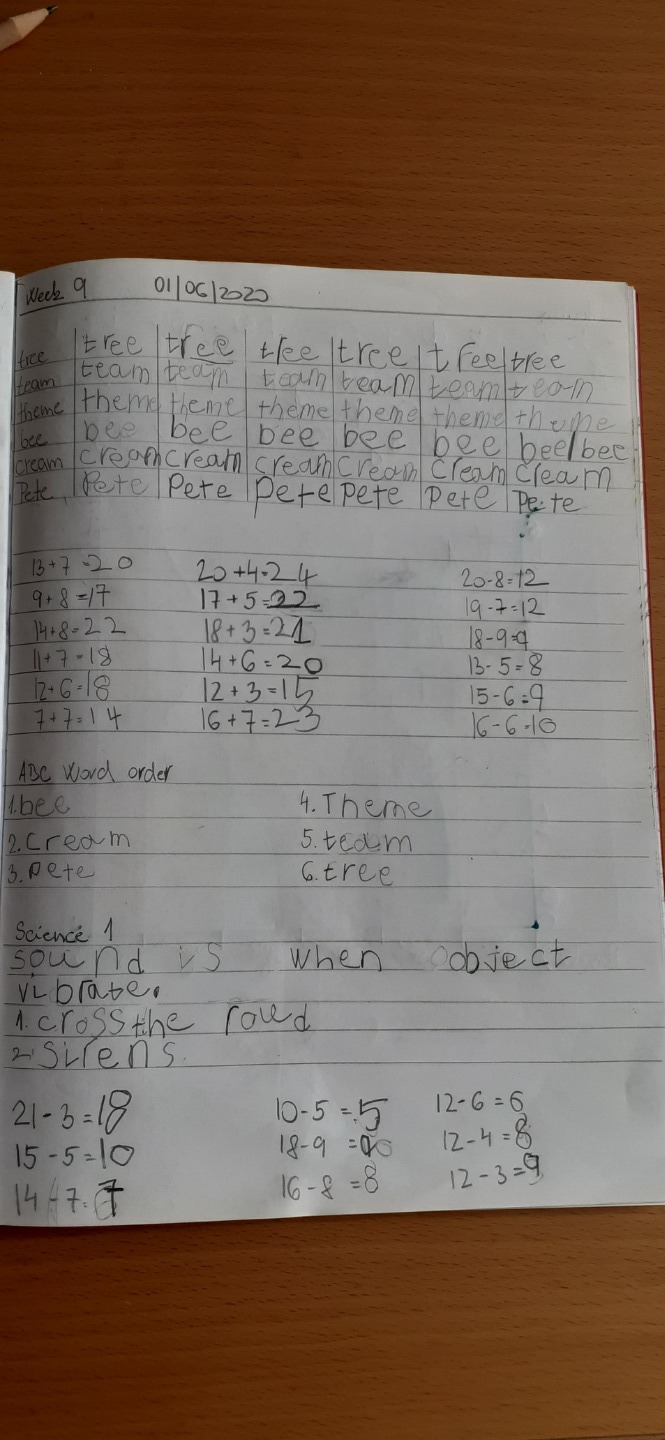 Week 9 01/06/2020
tree tree tree tree tree tree tree
team team team team team team team
theme theme theme theme theme theme theme
bee bee bee bee bee bee bee/bee
cream cream cream cream cream cream cream
Pete Pete Pete Pete Pete Pete Pete
13+7=20 20+4=24 20-8=12
9+8=17 17+5=22 19-7=12
14+8=22 18+3=21 18-9=9
11+7=18 14+6=20 13-5=8
12+6=18 12+3=15 15-6=9
7+7=14 16+7=23 16-6=10
ABC Word order
1.bee 4.Theme
2.Cream 5.team
3.Pete 6.tree
Science 1
sound is when object
vibrate.
1.cross the roud
2.Sirens.
21-3=18 10-5=5 12-6=6
15-5=10 18-9= 12-4=8
14-7=7 16-8=8 12-3=9